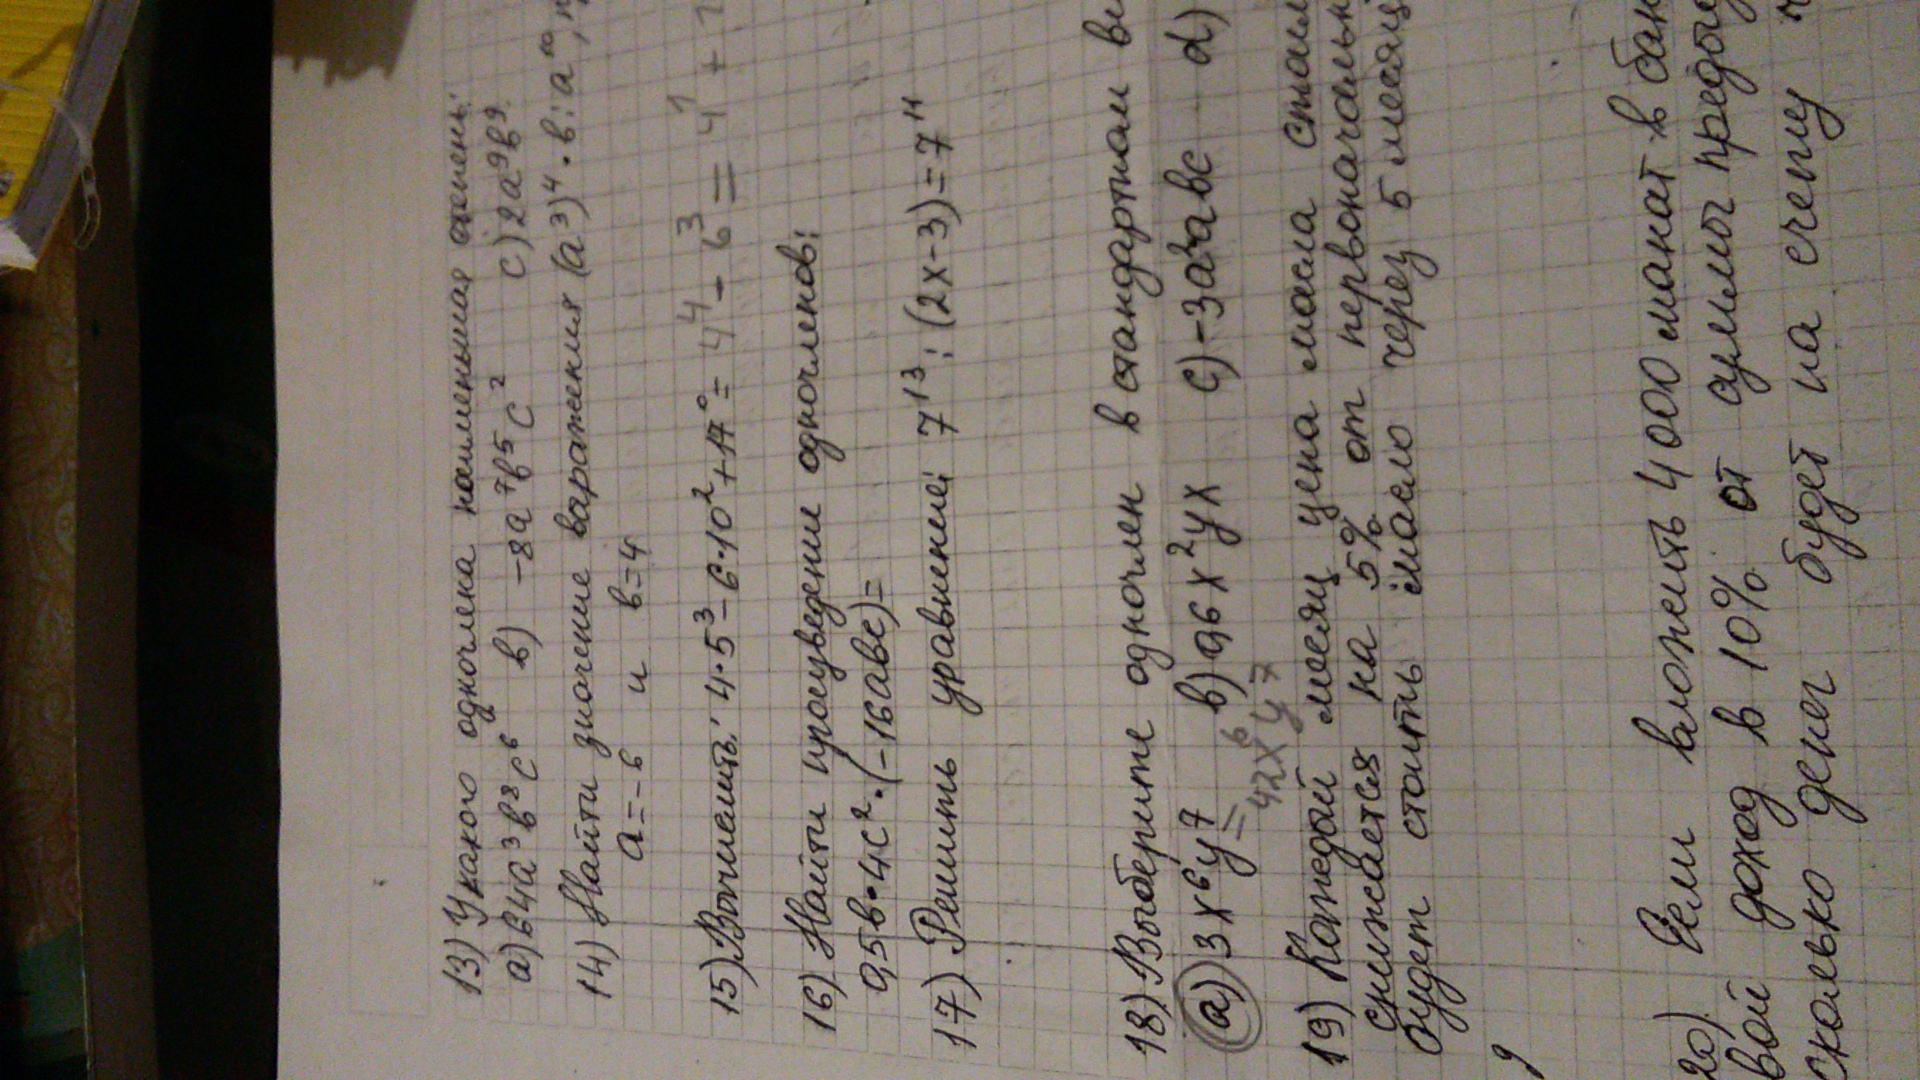 13) У какого одночлена наименьшая степень:
а) 64a³b⁸c⁶ в) -8a⁷b⁵c² с) 2a⁹b⁹
14) Найти значение выражения (a³)⁴·b:a¹⁰,
a=-6 и b=4
15) Вычислить: 4·5³-6·10²+17⁰= 4⁴-6³=4¹+
16) Найти произведение одночленов:
0,5b·4c²·(-16abc)=
17) Решить уравнение: 7¹³:(2x-3)=7¹¹
18) Выберите одночлен в стандартном
а) 3x⁶y⁷ в) 0,6x²yx с) -3a³abc d)
= 42x⁶y⁷
19) Каждый месяц цена масла
снижается на 5% от
будет стоить масло через 5
20) Если вложить 4000 манат в
вой доход в 10% от суммы
сколько денег будет на счету